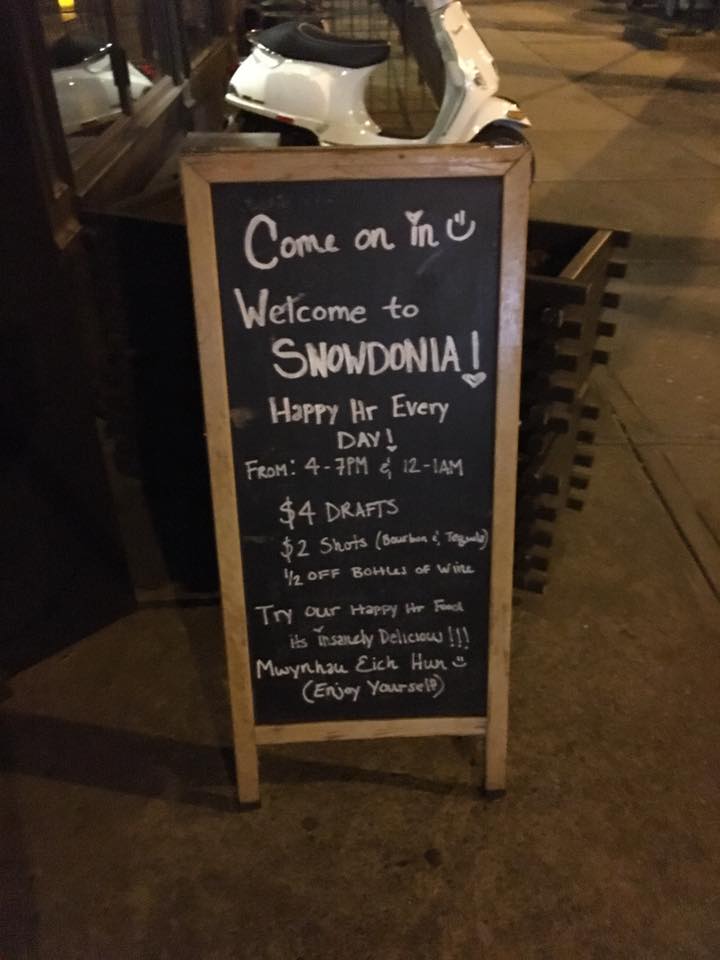 Come on in
Welcome to
SNOWDONIA!
Happy Hr Every
DAY!
FROM: 4-7PM & 12-1AM
$4 DRAFTS
$2 Shots (Bourbon & Tequila)
1/2 OFF BOttLes OF Wine
Try our Happy Hr Food
its insanely Delicious!!!
Mwynhau Eich Hun
(Enjoy Yourself)